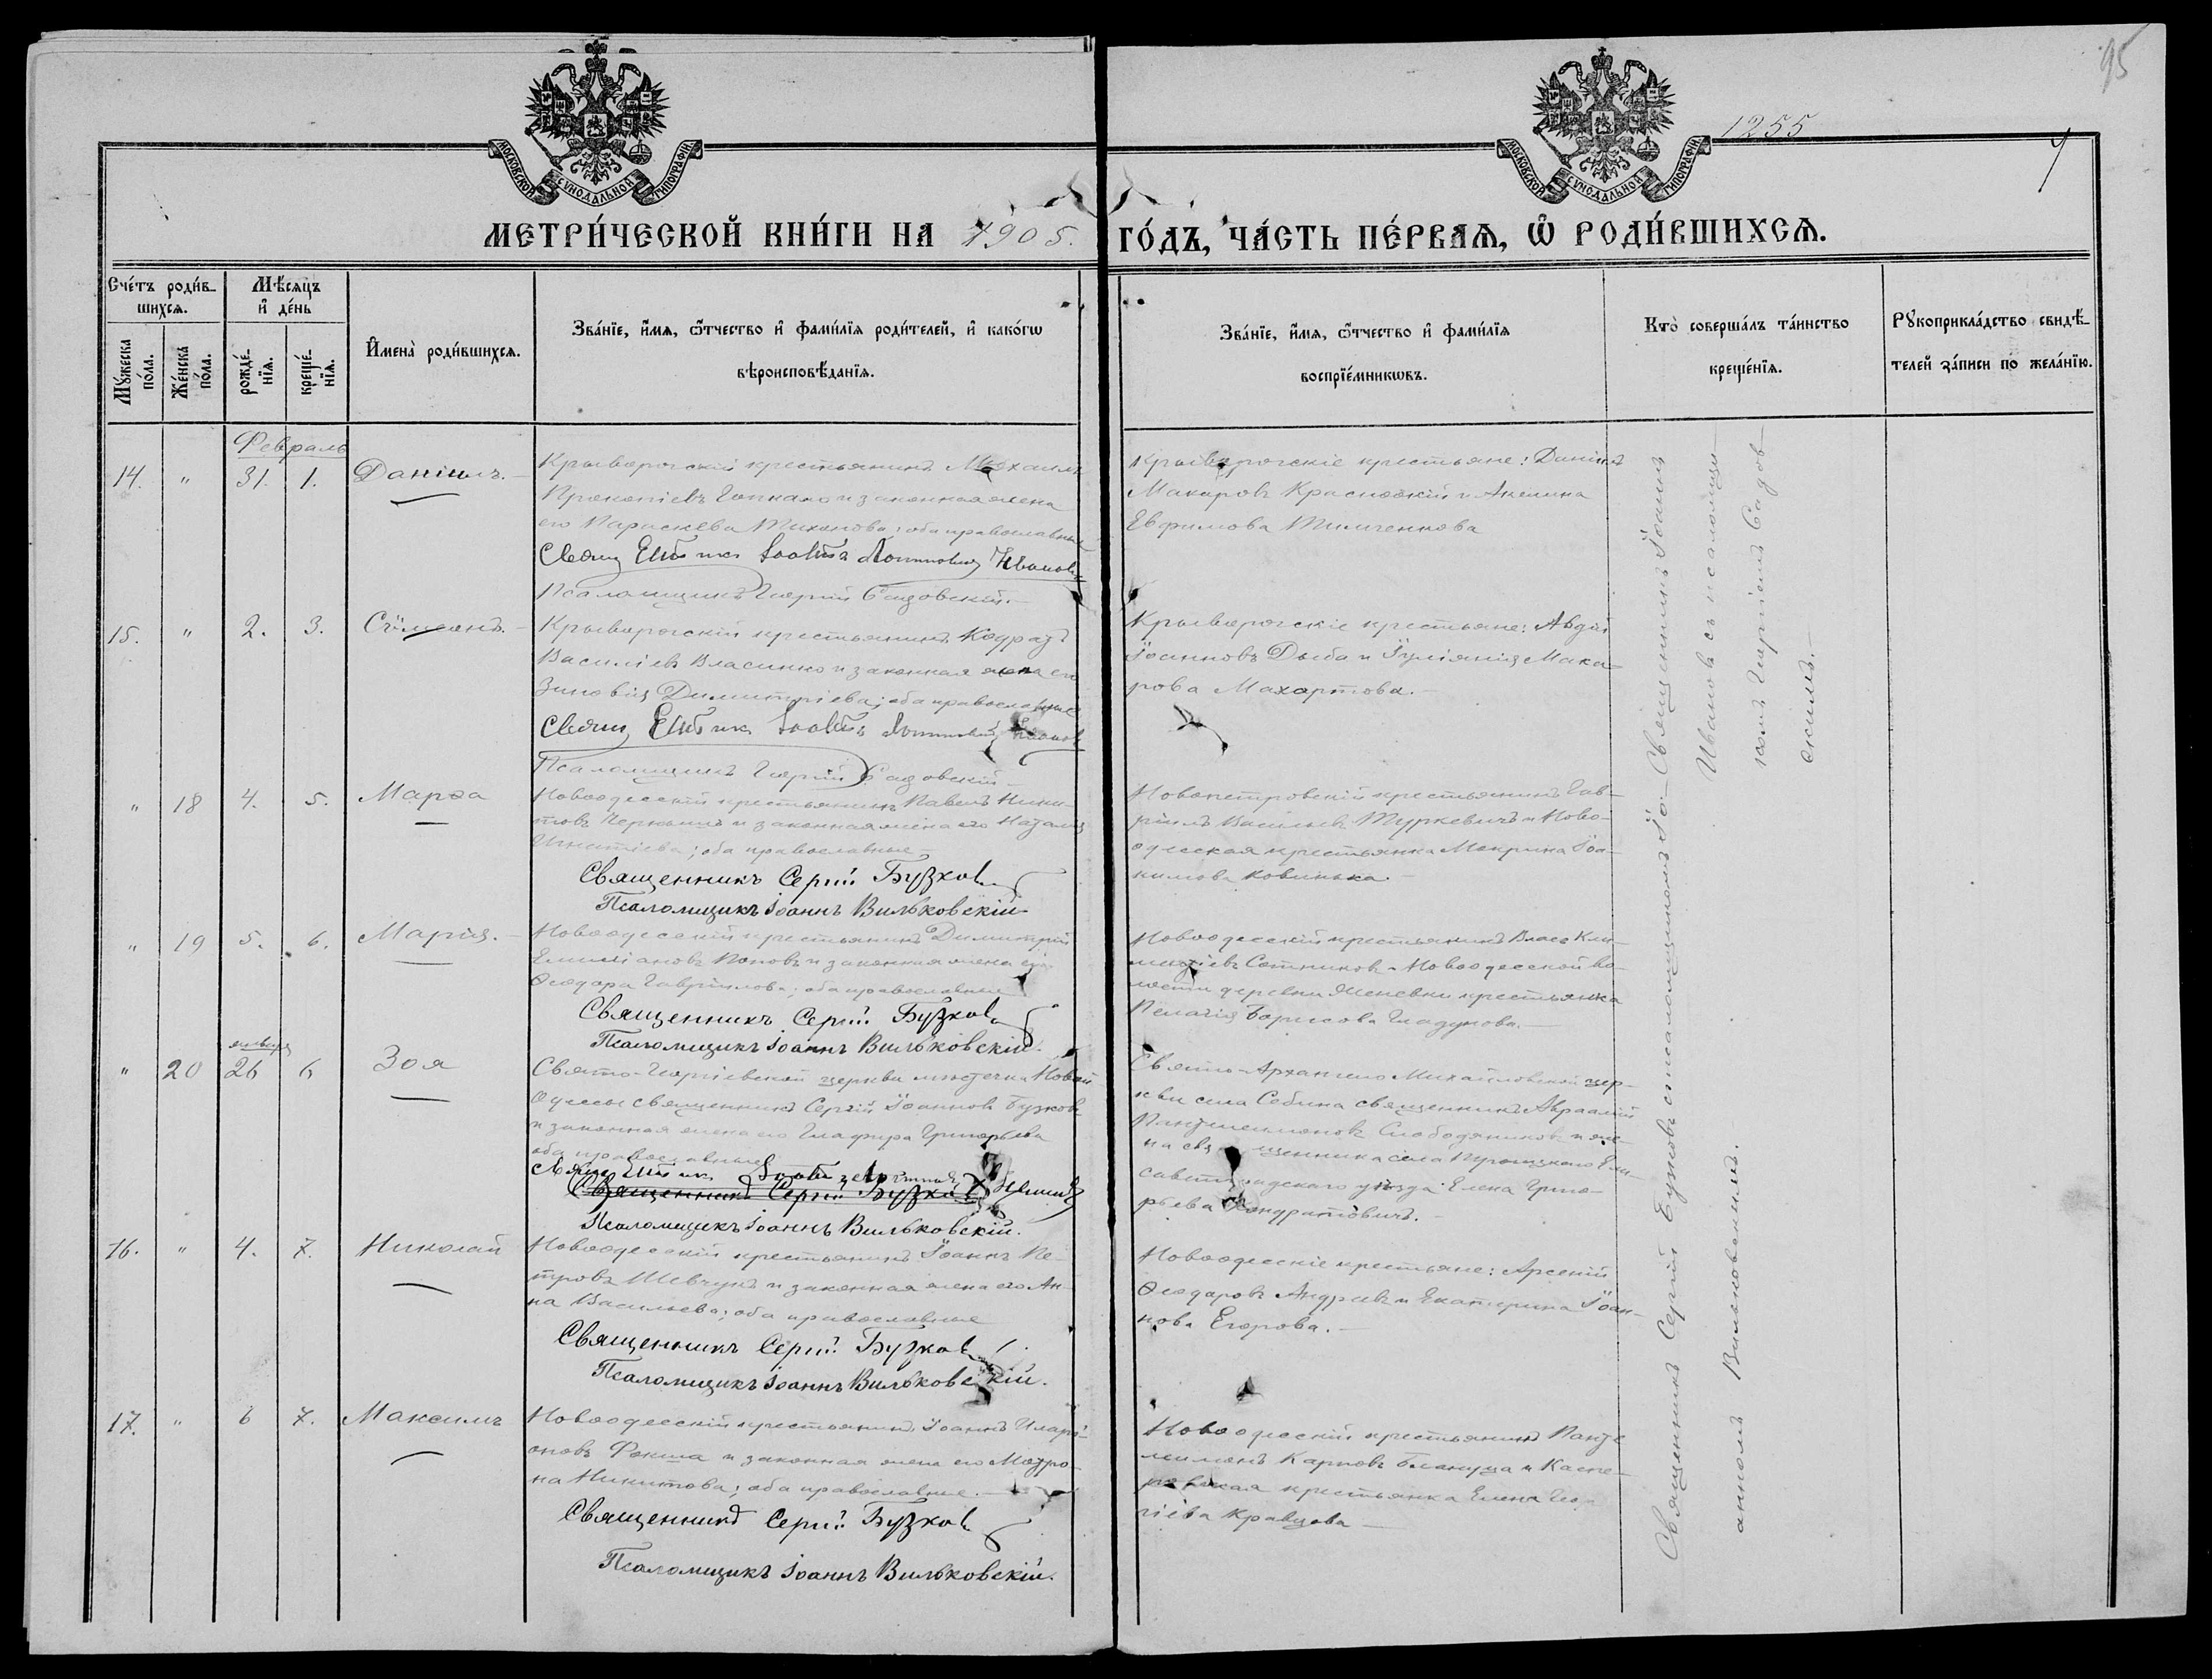 95
1255
МОСКОВСКОЙ СѴНОДАЛЬНОЙ ТИПОГРАФІИ
МОСКОВСКОЙ СѴНОДАЛЬНОЙ ТИПОГРАФІИ
МЕТРИ́ЧЕСКОЙ КНИ́ГИ НА 1905.
ГО́ДЪ, ЧА́СТЬ ПЕ́РВАѦ, Ѡ҆ РОДИ́ВШИХСѦ.
Сче́тъ роди́в-
шихсѧ.
Мꙋ́жеска по́ла.
Же́нска по́ла.
Мѣ́сѧцъ
и҆ де́нь
рожде́-нїѧ.
креще́-нїѧ.
И҆мена̀ роди́вшихсѧ.
Зва́нїе, и҆́мѧ, ѻ҆́тчество и҆ фами́лїѧ роди́телей, и҆ како́гѡ
вѣроисповѣ́данїѧ.
Зва́нїе, и҆́мѧ, ѻ҆́тчество и҆ фами́лїѧ
воспрїе́мникѡвъ.
Кто̀ соверша́лъ та́инство
креще́нїѧ.
Рꙋкоприкла́дство свидѣ́-
телей за́писи по жела́нїю.
Февраль
14. " 31. 1. Даніилъ.
Криворогскій крестьянинъ Михаилъ
Прокопіевъ и законная жена
его Параскева Тихонова; оба православные
Псаломщикъ Георгій Садовскій.
Криворогскіе крестьяне: Даніилъ
Макаровъ Красновскій и Акилина
Евфимова Тимченкова
15. " 2. 3. Сѵмеонъ.
Криворогскій крестьянинъ Кодратъ
Василіевъ Власенко и законная жена его
Зиновія Димитріева; оба православные
Псаломщикъ Георгій Садовскій
Криворогскіе крестьяне: Авдій
Іоанновъ Дыба и Іуліанія Мака-
рова Махортова.
" 18 4. 5. Марѳа
Новоодесскій крестьянинъ Павелъ Ники-
товъ и законная жена его Наталія
Игнатіева; оба православные
Священникъ Сергій Бузковъ
Псаломщикъ Іоаннъ Вильковскій
Новопетровскій крестьянинъ Гав-
ріилъ Васильевъ Туркевичъ и Ново-
одесская крестьянка Макрина Іоа-
кимова
" 19 5. 6. Марія.
Новоодесскій крестьянинъ Димитрій
Емиліановъ Поповъ и законная жена его
Ѳеодора Гавріилова; оба православные
Священникъ Сергій Бузковъ
Псаломщикъ Іоаннъ Вильковскій
Новоодесскій крестьянинъ Власъ Кли-
ментіевъ Сотниковъ и Новоодесской во-
лости деревни крестьянка
Пелагія Борисова Гладунова.
января
" 20 26 6 Зоя
Свято-Георгіевской церкви мѣстечка Новой
Одессы священникъ Сергій Іоанновъ Бузковъ
и законная жена его Глафира Григорьева
оба православные
Священникъ Сергій Бузковъ
Псаломщикъ Іоаннъ Вильковскій.
Свято-Архангело Михайловской цер-
кви села Себина священникъ Авраамій
Пантелеимоновъ Слободяниковъ и же-
на священника села Ели-
саветградскаго уѣзда Елена Григо-
рьева Кондратовичъ.
16. " 4. 7. Николай
Новоодесскій крестьянинъ Іоаннъ Пе-
тровъ Шевчукъ и законная жена его Ан-
на Васильева; оба православные
Священникъ Сергій Бузковъ
Псаломщикъ Іоаннъ Вильковскій.
Новоодесскіе крестьяне: Арсеній
Ѳеодоровъ Андреевъ и Екатерина Іоан-
нова Егорова.
17. " 6 7. Максимъ
Новоодесскій крестьянинъ Іоаннъ Иларі-
оновъ Фокша и законная жена его Матро-
на Никитова; оба православные.
Священникъ Сергій Бузковъ
Псаломщикъ Іоаннъ Вильковскій.
Новоодесскій крестьянинъ Панте-
леимонъ Карповъ и Каспе-
ровская крестьянка Елена Геор-
гіева Кравцова
Священникъ Сергій Бузковъ с псаломщикомъ Іо-
анномъ Вильковскимъ.
Священникъ Іоаннъ
Ивановъ съ псаломщи-
комъ Георгіемъ Садов-
скимъ.